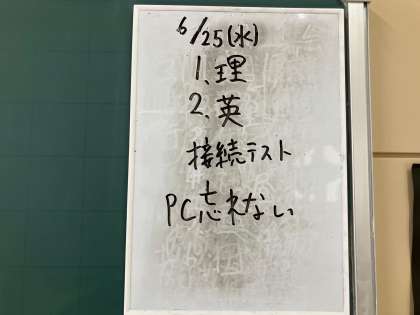 6/25(水)
1、理
2、英
接続テスト
PC忘れない